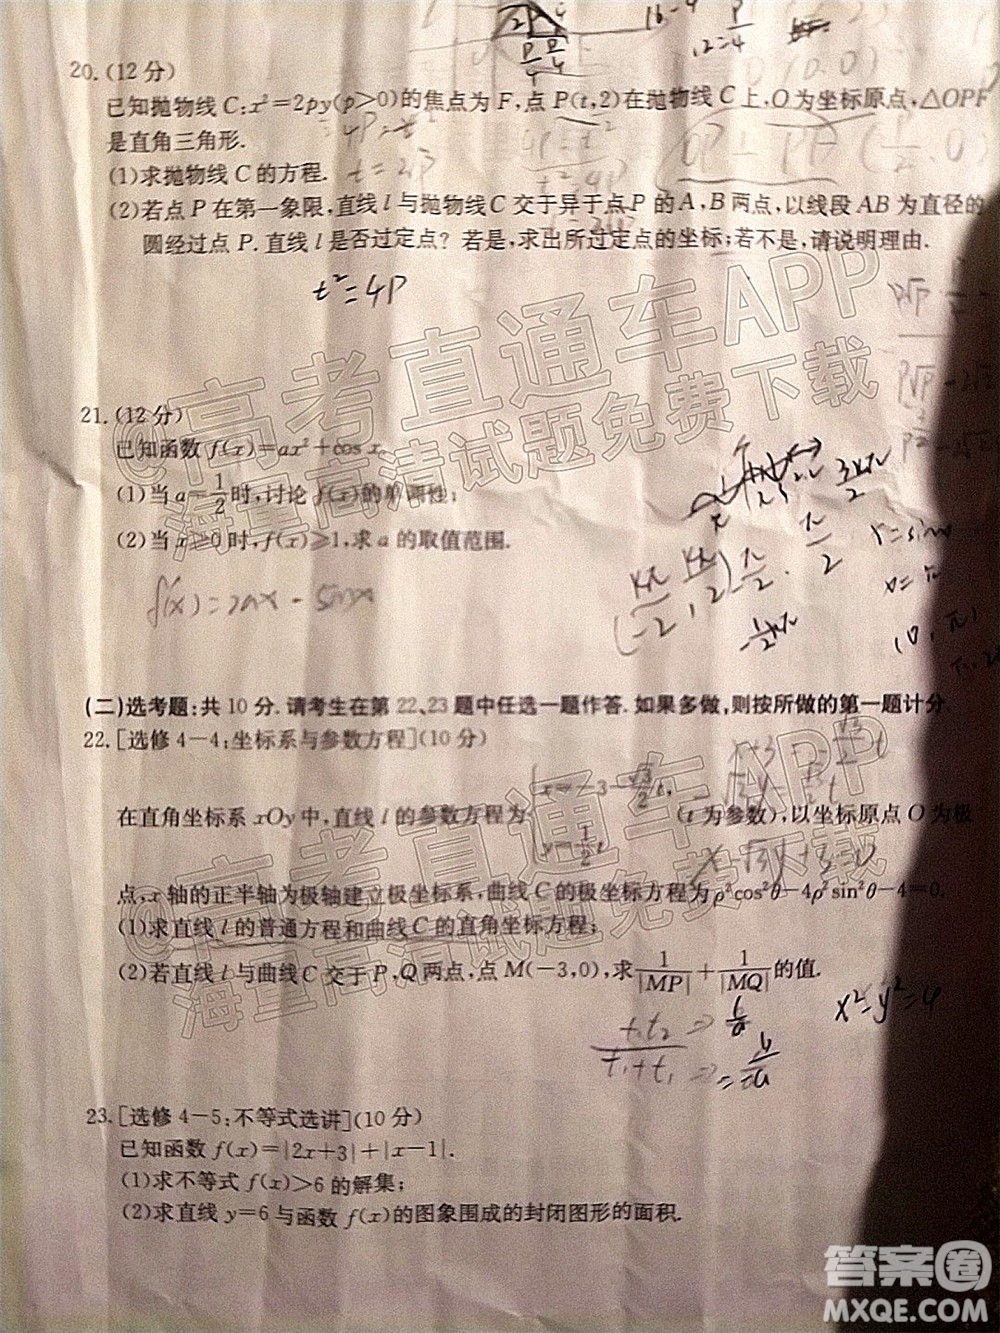 16-4
P
12=4
20.(12分)
已知抛物线C:x²=2py(p>0)的焦点为F,点P(t,2)在抛物线C上,O为坐标原点,△OPF
是直角三角形.
(1)求抛物线C的方程.
(2)若点P在第一象限,直线l与抛物线C交于异于点P的A,B两点,以线段AB为直径的
圆经过点P.直线l是否过定点?若是,求出所过定点的坐标;若不是,请说明理由.
t²=4P
21.(12分)
已知函数f(x)=ax²+cos x.
(1)当a=1/2时,讨论f(x)的单调性;
(2)当x≥0时,f(x)≥1,求a的取值范围.
f'(x)=2ax-sinx
(二)选考题:共10分.请考生在第22、23题中任选一题作答.如果多做,则按所做的第一题计分.
22.[选修4-4:坐标系与参数方程](10分)
x=-3-√3/2 t,
在直角坐标系xOy中,直线l的参数方程为 (t为参数),以坐标原点O为极
y=-1/2 t
x-√3y+3=0
点,x轴的正半轴为极轴建立极坐标系,曲线C的极坐标方程为ρ²cos²θ-4ρ²sin²θ-4=0.
(1)求直线l的普通方程和曲线C的直角坐标方程;
(2)若直线l与曲线C交于P,Q两点,点M(-3,0),求1/|MP|+1/|MQ|的值.
x²=y²=4
23.[选修4-5:不等式选讲](10分)
已知函数f(x)=|2x+3|+|x-1|.
(1)求不等式f(x)>6的解集;
(2)求直线y=6与函数f(x)的图象围成的封闭图形的面积.
©高考直通车APP
海量高清试题免费下载
©高考直通车APP
海量高清试题免费下载
答案圈
MXQE.COM